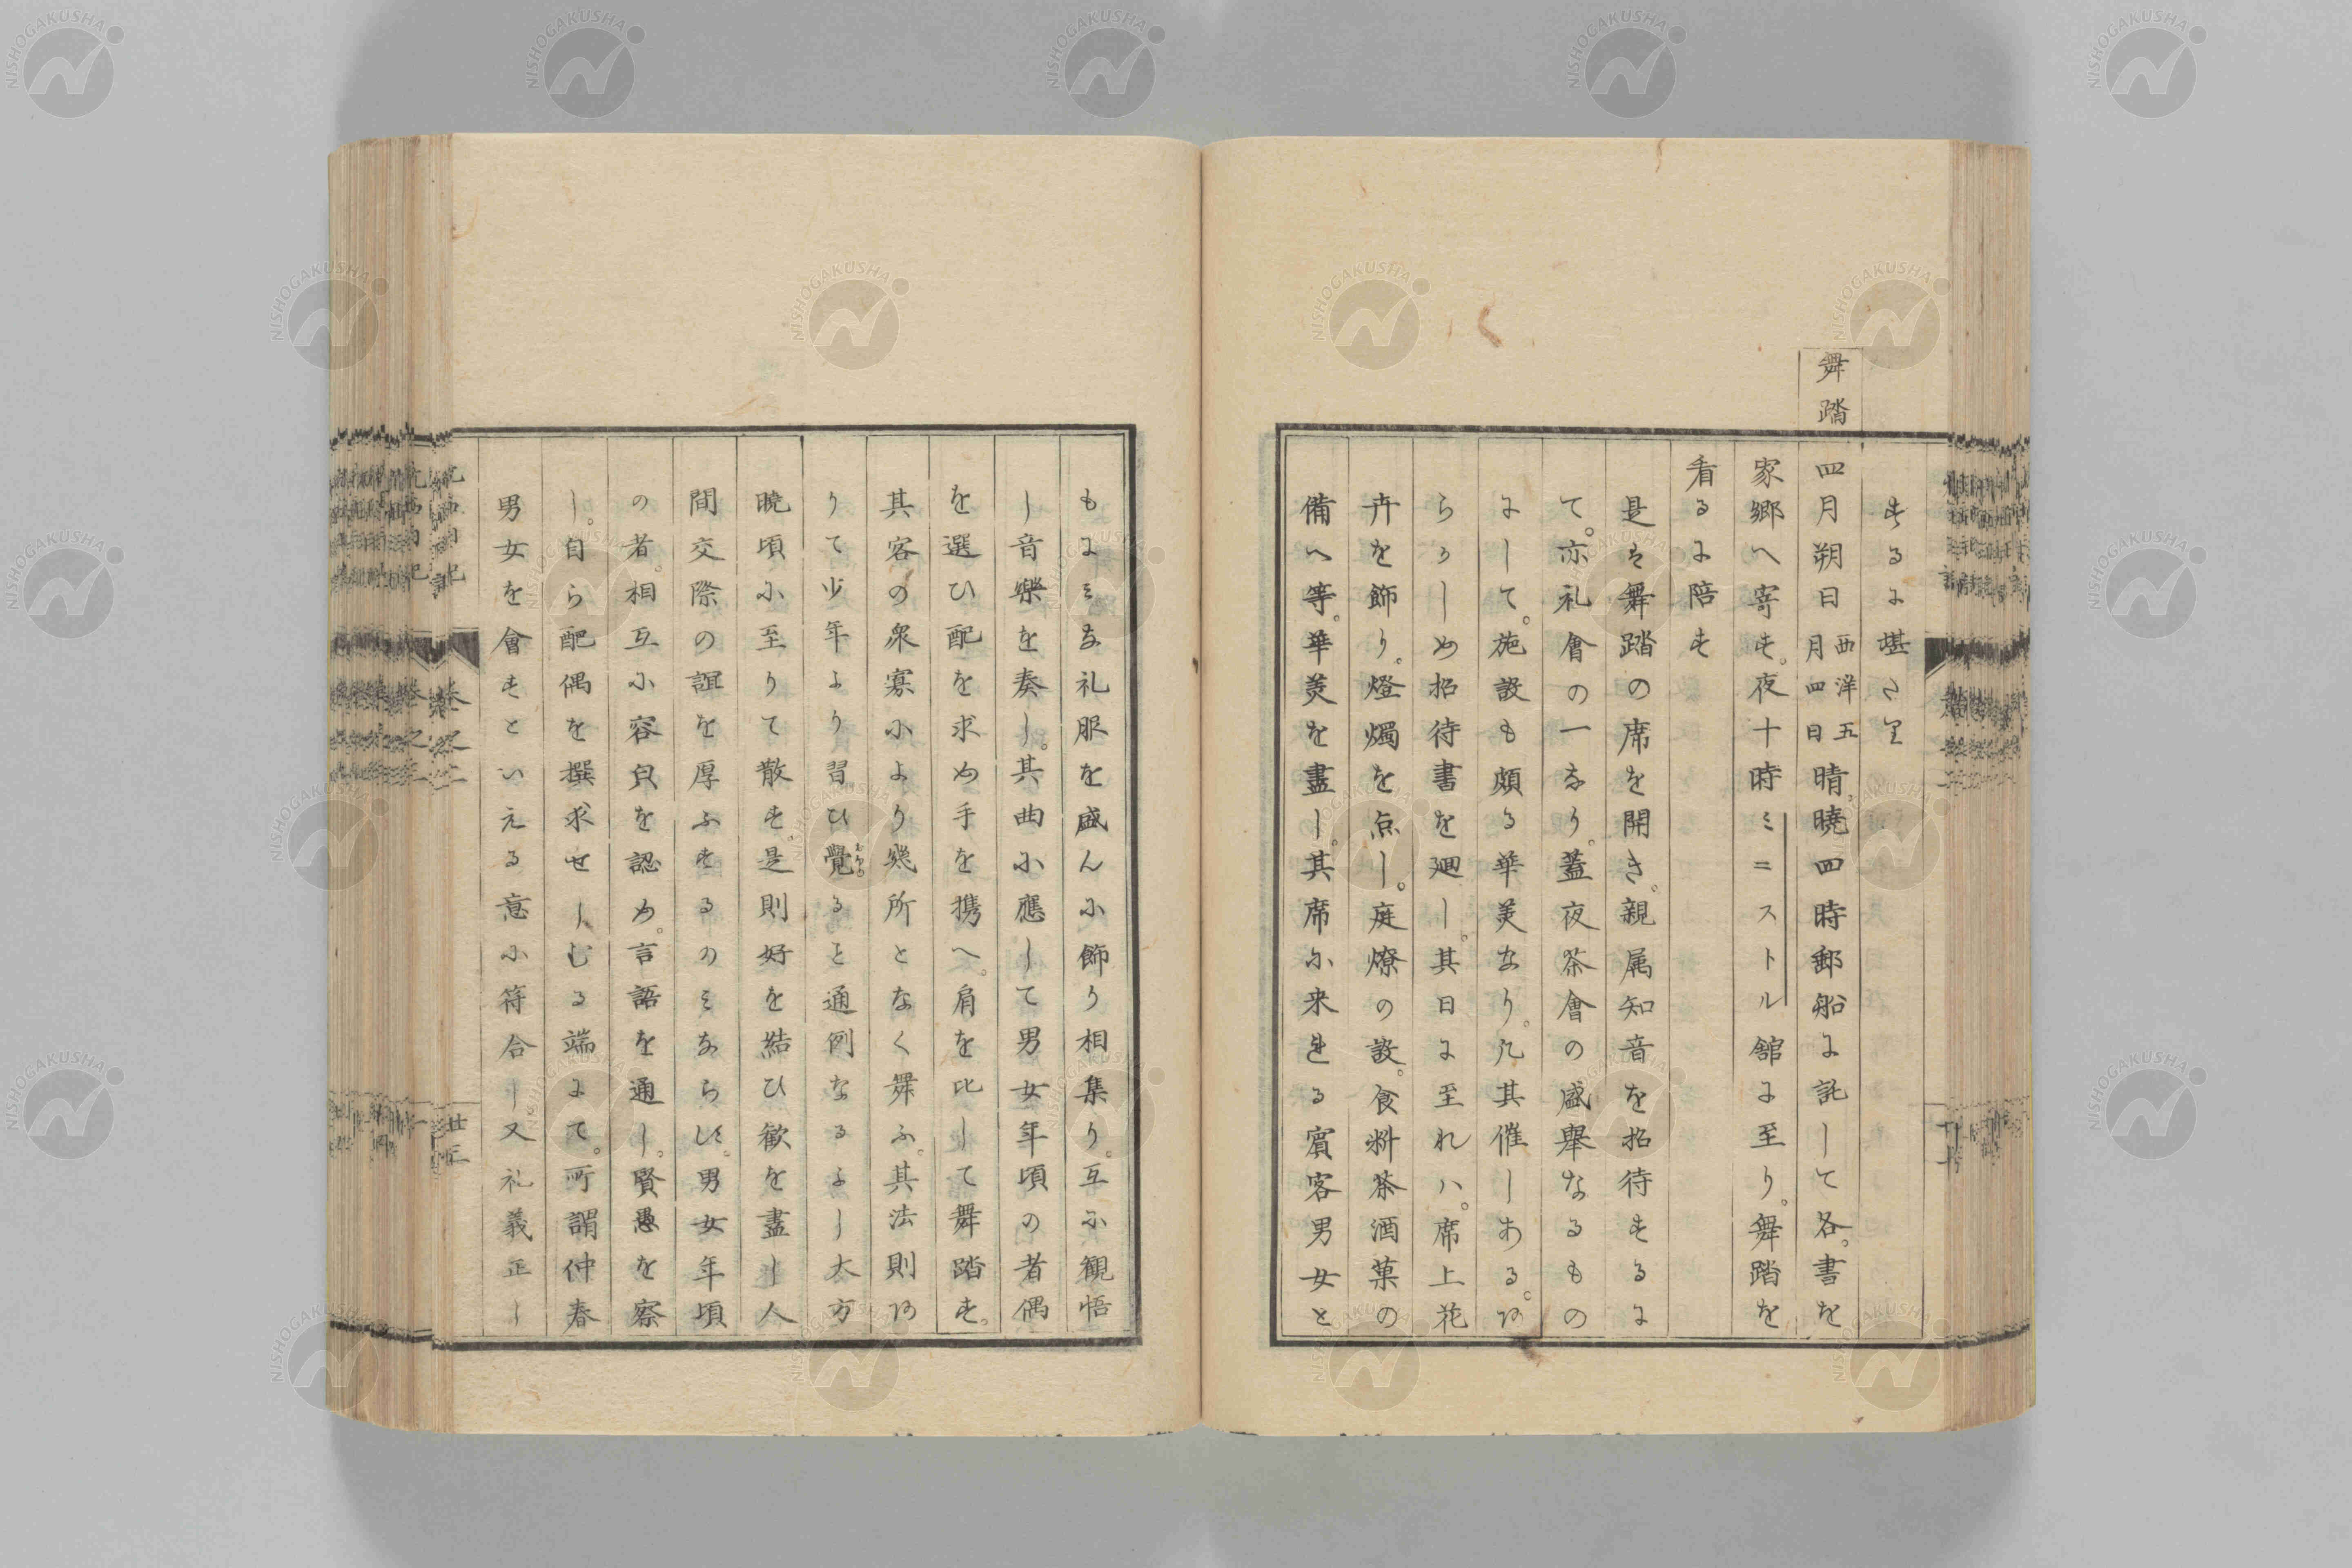 舞踏
するに堪さり
四月朔日西洋五月四日晴。暁四時郵船に託して各。書を
家郷へ寄す。夜十時ミニストル舘に至り。舞踏を
看るに陪す
是は舞踏の席を開き。親属知音を招待するに
て。亦礼會の一なり。蓋夜茶會の盛舉なるもの
にして。施設も頗る華美なり。凡其催しある。時
らかしめ招待書を廻し。其日に至れハ。席上花
卉を飾り。燈燭を点し。庭燎の設。食料茶酒菓の
備へ等。華美を盡し。其席に来れる賓客男女と
もにみな礼服を盛んに飾り相集り。互に観悟
し音樂を奏し。其曲に應して男女年頃の者偶
を選ひ配を求め手を携へ。肩を比して舞踏す。
其客の衆寡により幾所となく舞ふ。其法則
りて少年より習ひ覺ると通例なるよし大方
暁頃に至りて散す。是則好を結ひ歓を盡し人
間交際の誼を厚ふするのみならす。男女年頃
の者。相互に容皃を認め。言語を通し。賢愚を察
し。自ら配偶を撰求せしむる端にて。所謂仲春
男女を會すといえる意に符合し又礼義正し
航西日記
巻之二
廿三
NISHOGAKUSHA